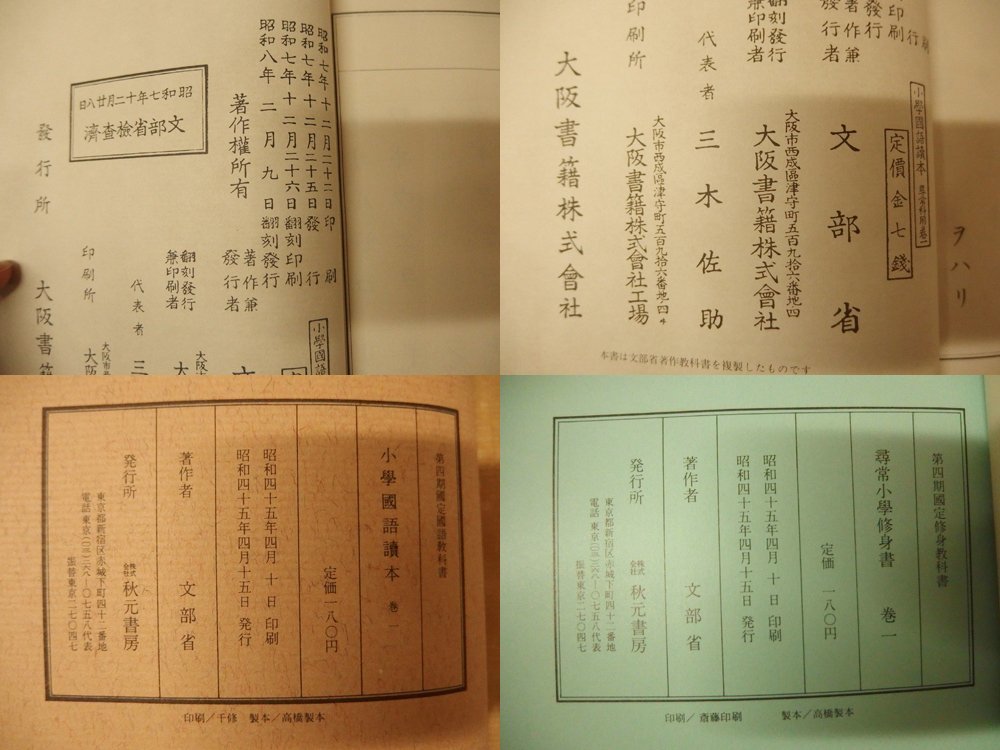 昭和七年十二月二十二日印刷
昭和七年十二月二十五日發行
昭和七年十二月二十六日翻刻印刷
昭和八年二月九日翻刻發行
著作權所有
昭和七年十二月廿八日
文部省檢査濟
小學國語
著作兼
發行者
翻刻發行
兼印刷者
大阪市
大
代表者 三
印刷所 大
發行所 大阪書籍
ヲハリ
小學國語讀本 尋常科用卷一
定價金七錢
行刷
印刷
發行
著作兼
發行者
文部省
翻刻發行
兼印刷者
大阪市西成區津守町五百九拾六番地四
大阪書籍株式會社
代表者 三木佐助
印刷所
大阪市西成區津守町五百九拾六番地四
大阪書籍株式會社工場
大阪書籍株式會社
本書は文部省著作教科書を複製したものです
第四期國定國語教科書
小學國語讀本 巻一
定価一八〇円
昭和四十五年四月十日 印刷
昭和四十五年四月十五日 発行
著作者 文部省
発行所 株式会社 秋元書房
東京都新宿区赤城下町四十二番地
電話 東京(二六八)〇七五八代表
振替東京二七〇四七
印刷/千修 製本/高橋製本
第四期國定修身教科書
尋常小學修身書 巻一
定価 一八〇円
昭和四十五年四月十日 印刷
昭和四十五年四月十五日 発行
著作者 文部省
発行所 株式会社 秋元書房
東京都新宿区赤城下町四十二番地
電話 東京(二六八)〇七五八代表
振替東京二七〇四七
印刷/斎藤印刷 製本/高橋製本